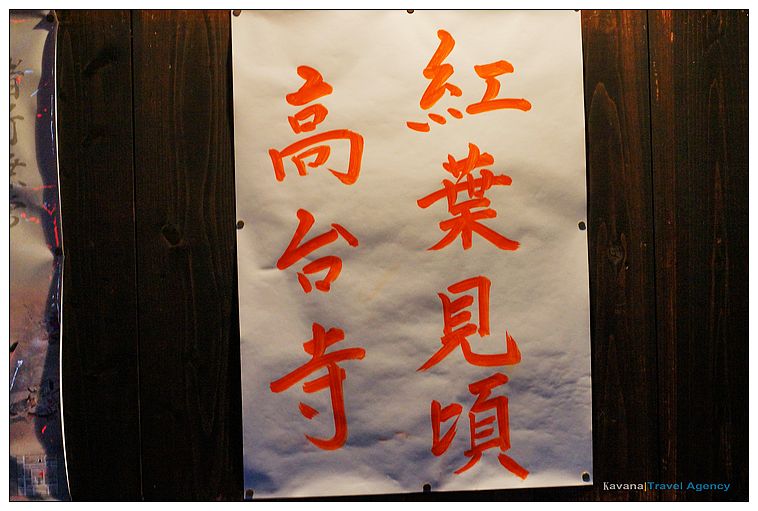 紅葉見頃
高台寺
Kavana|Travel Agency